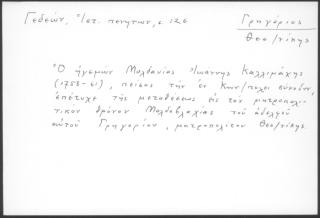 Γεδεών, Ἱστ. πενήτων, σ. 126
Γρηγόριος
Θεσ/νίκης
Ὁ ἡγεμὼν Μολδαυίας Ἰωάννης Καλλιμάχης
(1758-61), πείσας τὴν ἐν Κων/πόλει σύνοδον,
ἐπέτυχε τῆς μεταθέσεως εἰς τὸν μητροπολι-
τικὸν θρόνον Μολδοβλαχίας τοῦ ἀδελφοῦ
αὐτοῦ Γρηγορίου, μητροπολίτου Θεσ/νίκης.